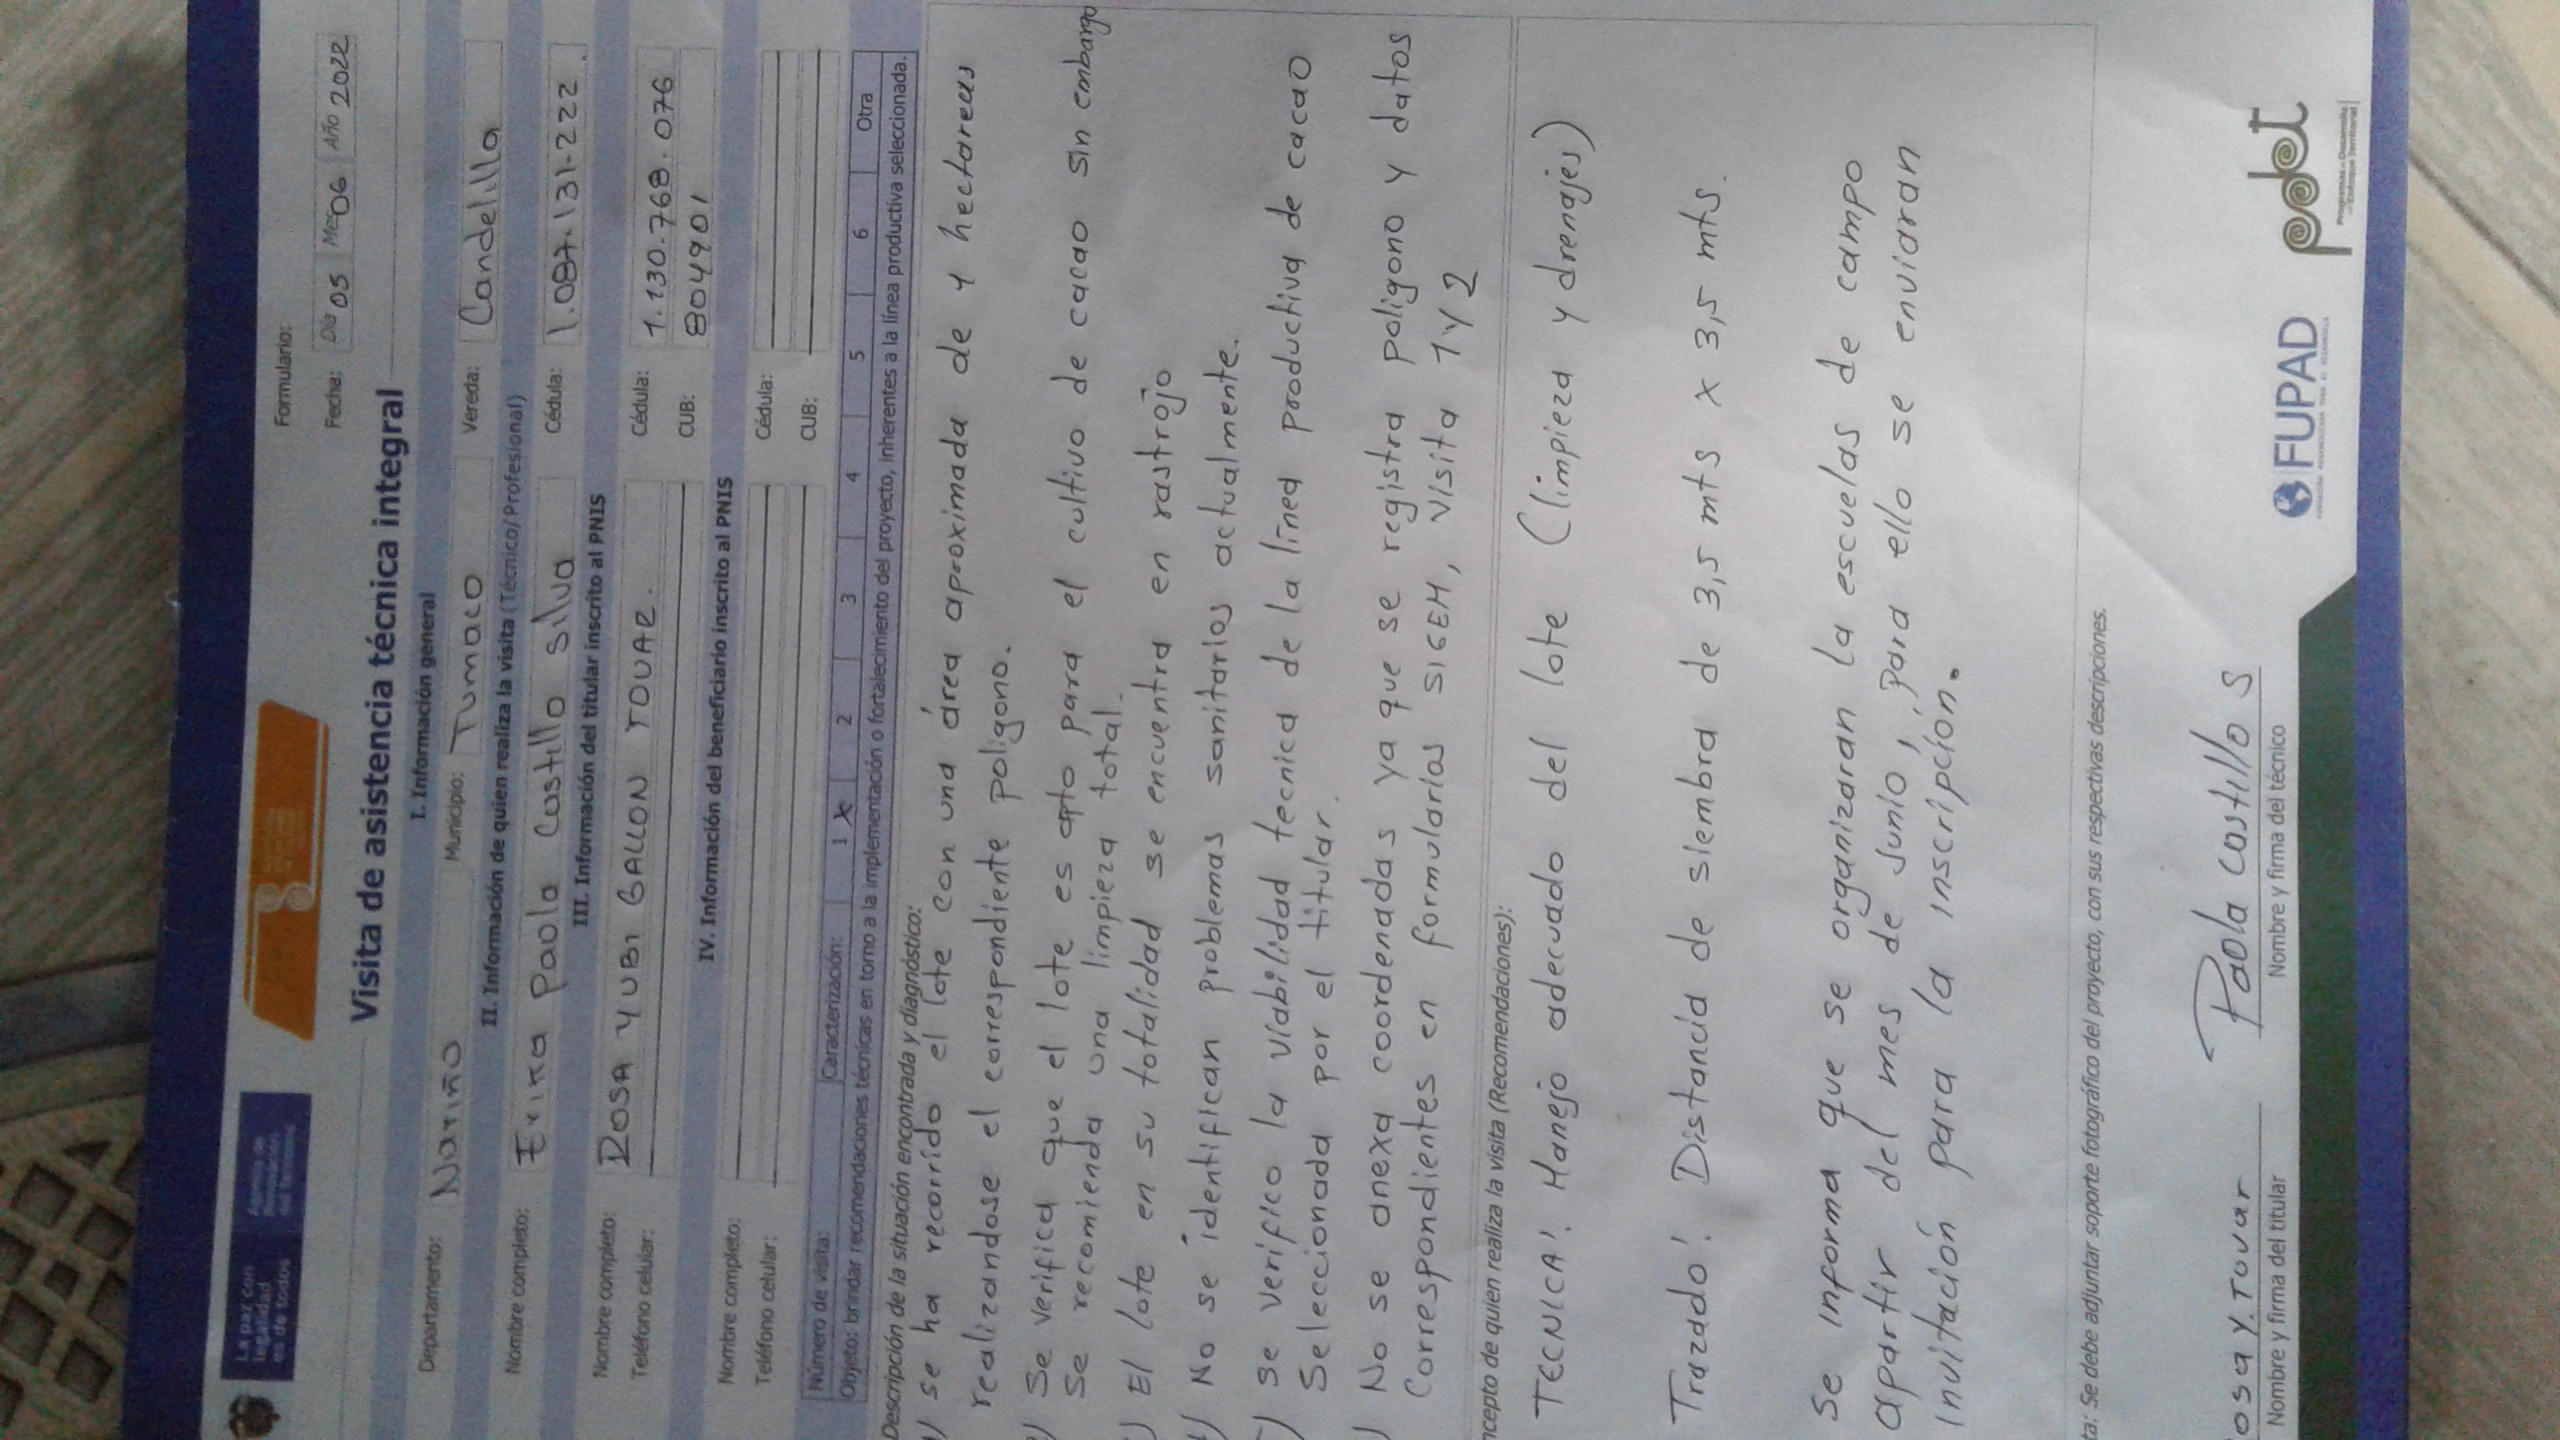 La paz con
legalidad
es de todos
Agencia de
Renovación
del Territorio
Formulario:
Fecha: Día 05 Mes 06 Año 2022
Visita de asistencia técnica integral
I. Información general
Departamento: Nariño Municipio: Tumaco Vereda: Candelilla
II. Información de quien realiza la visita (Técnico/Profesional)
Nombre completo: Erika Paola Castillo silva Cédula: 1.087.131.222.
III. Información del titular inscrito al PNIS
Nombre completo: ROSA YUBI GALLON TOVAR. Cédula: 1.130.768.076
Teléfono celular: CUB: 804901
IV. Información del beneficiario inscrito al PNIS
Nombre completo: Cédula:
Teléfono celular: CUB:
Número de visita: Caracterización: 1 X 2 3 4 5 6 Otra
Objeto: brindar recomendaciones técnicas en torno a la implementación o fortalecimiento del proyecto, inherentes a la línea productiva seleccionada.
Descripción de la situación encontrada y diagnóstico:
) se ha recorrido el lote con una área aproximada de Y hectareas
realizandose el correspondiente poligono.
) Se verifica que el lote es apto para el cultivo de cacao sin embargo
Se recomienda una limpieza total.
) El lote en su totalidad se encuentra en rastrojo
) No se identifican problemas sanitarios actualmente.
) se verifico la viabilidad tecnica de la linea productiva de cacao
Seleccionada por el titular.
) No se anexa coordenadas ya que se registra poligono y datos
Correspondientes en formularios SIGEM, visita 1 y 2
ncepto de quien realiza la visita (Recomendaciones):
TECNICA: Manejo adecuado del lote (limpieza y drenajes)
Trazado: Distancia de siembra de 3,5 mts x 3,5 mts.
Se informa que se organizaran la escuelas de campo
apartir del mes de Junio, para ello se enviaran
invitación para la inscripción.
ta: Se debe adjuntar soporte fotográfico del proyecto, con sus respectivas descripciones.
osa Y. Tovar Paola Castillo S
Nombre y firma del titular Nombre y firma del técnico
FUPAD
pdet
Programas de Desarrollo
con Enfoque Territorial